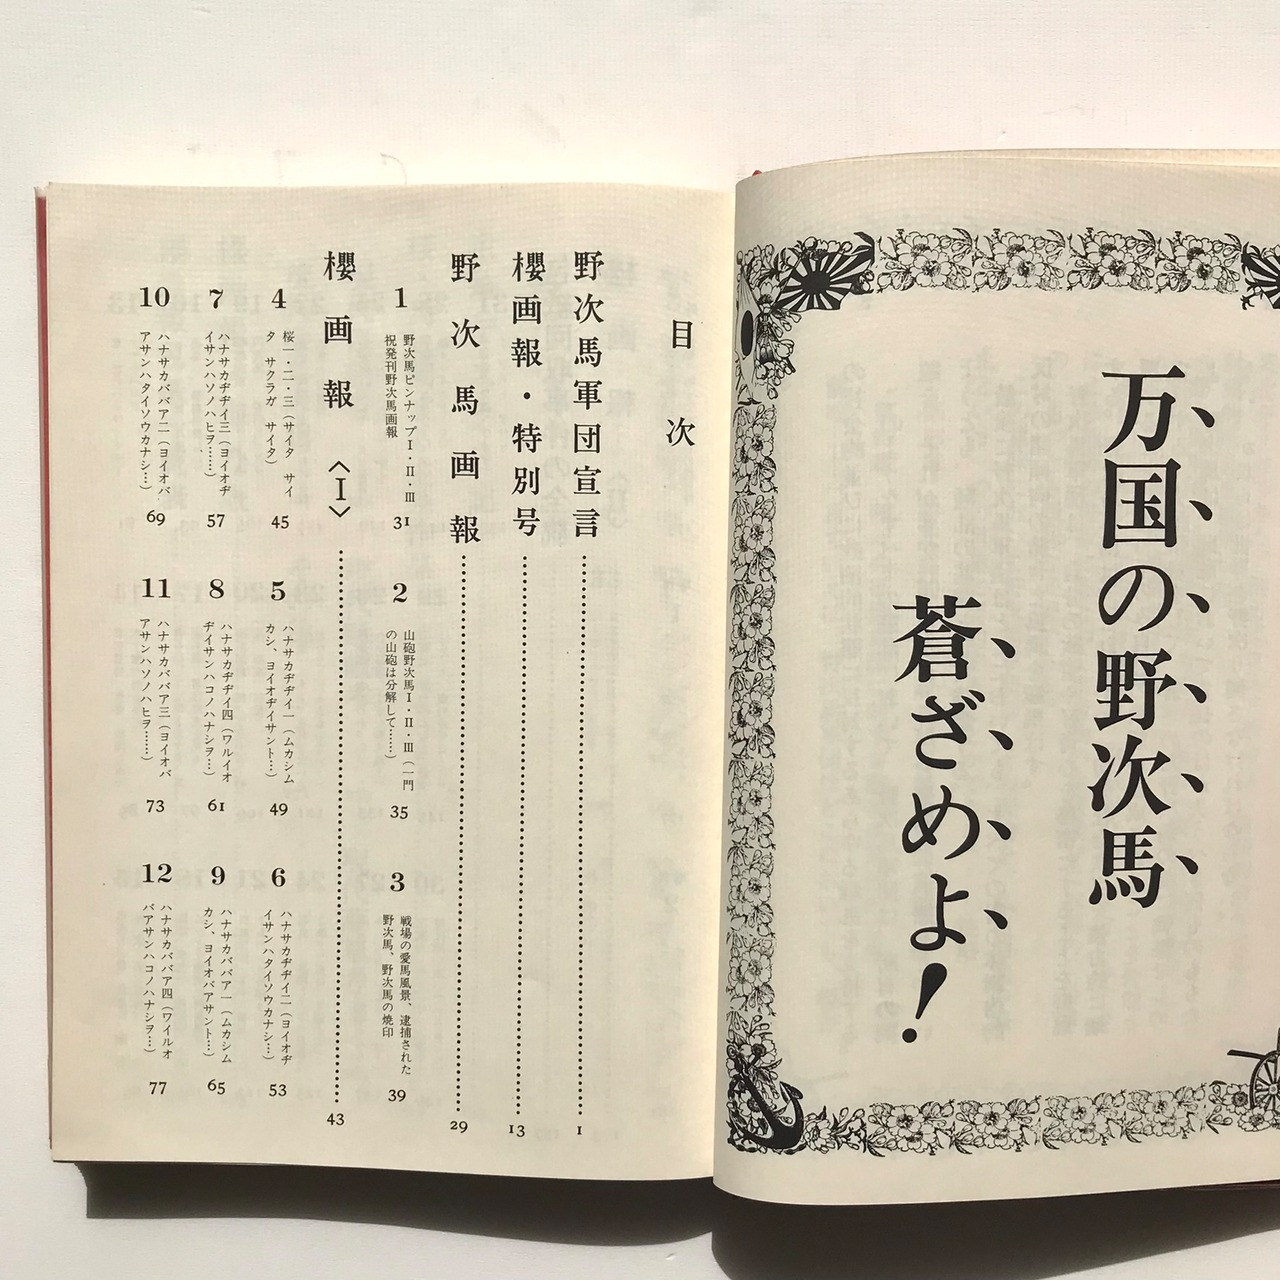 万国の野次馬
蒼ざめよ！
目次
野次馬軍団宣言 1
櫻画報・特別号 13
野次馬画報 29
1
野次馬ピンナップI・II・III
祝発刊野次馬画報
31
2
山砲野次馬I・II・III（一門
の山砲は分解して……）
35
3
戦場の愛馬風景、逮捕された
野次馬、野次馬の焼印
39
櫻画報〈I〉 43
4
桜一・二・三（サイタ サイ
タ サクラガ サイタ）
45
5
ハナサカヂヂイ一（ムカシム
カシ、ヨイオヂイサント…）
49
6
ハナサカヂヂイ二（ヨイオヂ
イサンハタイソウカナシ…）
53
7
ハナサカヂヂイ三（ヨイオヂ
イサンハソノハヒヲ……）
57
8
ハナサカヂヂイ四（ワルイオ
ヂイサンハコノハナシヲ…）
61
9
ハナサカババア一（ムカシム
カシ、ヨイオバアサント…）
65
10
ハナサカババア二（ヨイオバ
アサンハタイソウカナシ…）
69
11
ハナサカババア三（ヨイオバ
アサンハソノハヒヲ……）
73
12
ハナサカババア四（ワイルオ
バアサンハコノハナシヲ…）
77